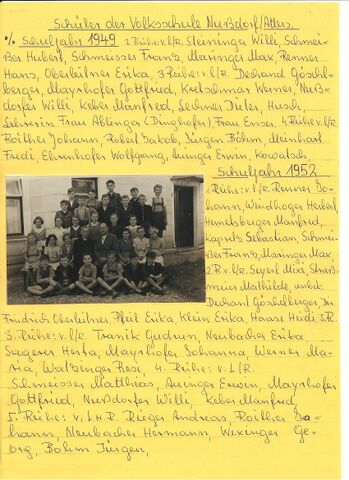 Schüler der Volksschule Nußdorf/Atters.
% Schuljahr 1949 2 Reihe v.l/r. Steininger Willi, Schmeis-
ser Hubert, Schmeisser Franz, Maringer Max, Renner
Hans, Oberleitner Erika, 3 Reihe: v. l/r. Dechand Göschl-
berger, Mayrhofer Gottfried, Kretschmar Werner, Nuß-
dorfer Willi, Keber Manfred, Lechner Dieter, Husch,
Lehrerin Frau Ablinger (Dinghofer) Frau Enser. 4 Reihe v.l/r
Röither Johann, Robert Jakob, Jürgen Böhm, Meinhart
Fredi, Ehrenhofer Wolfgang, Auinger Erwin, Kowatsch.
Schuljahr 1952
1 Reihe: v. l/r. Renner Jo-
hann, Weidhoger Herbert
Hemetsberger Manfred,
Kaprits Sebastian, Schmeis-
ser Franz, Maringer Max,
2 R v. l/r. Seyerl Mixi, Straß-
meier Mathilde, unbek.
Dechant Göschelberger, Dir.
Friedrich Oberleitner, Pfeil Erika, Klein Erika, Hausse Heidi 3.R
3. Reihe: v. l/r. Tranik Gudrun, Neubacher Erika,
Sagerer Herta, Mayrhofer Johanna, Werner Ma-
ria, Walzinger Resi, 4. Reihe: v. L/R.
Schmeisser Matthias, Auinger Erwin, Mayrhofer
Gottfried, Nußdorfer Willi, Keber Manfred,
5. Reihe: v. L n. R. Rieger Andreas, Röither Jo-
hann, Neubacher Hermann, Wixinger Ge-
org, Böhm Jürgen,